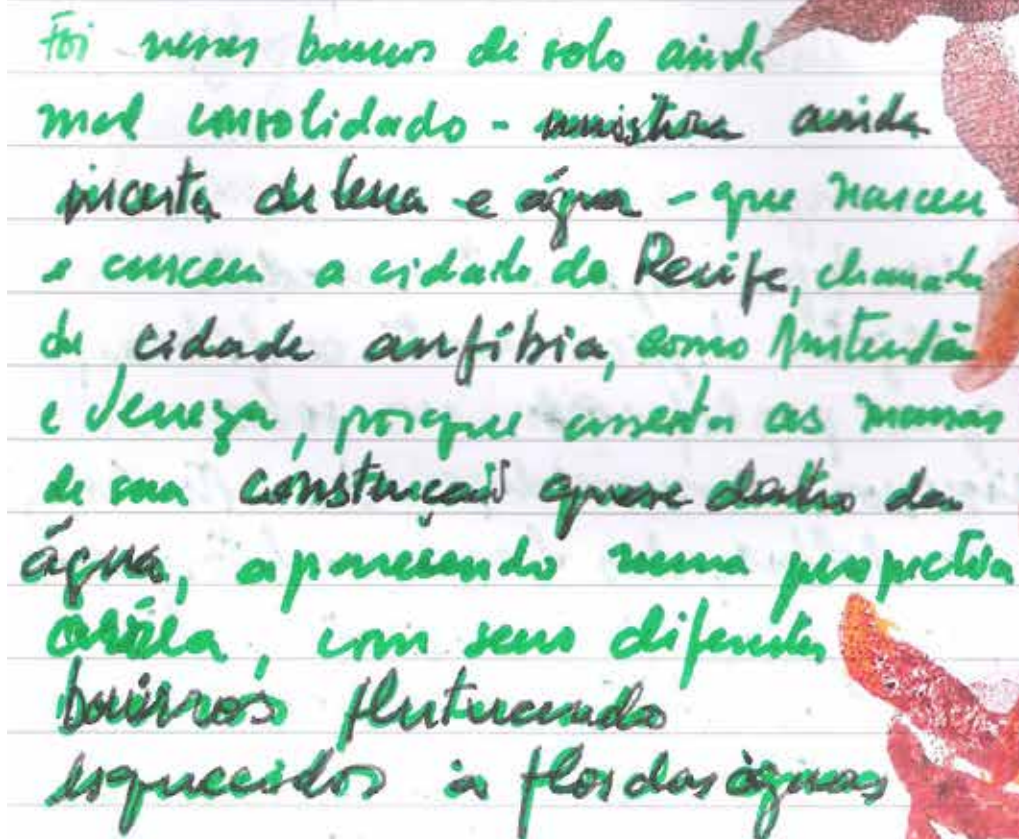 Foi nesses bancos de solo ainda
mal consolidado - mistura ainda
incerta de terra e água - que nasceu
e cresceu a cidade do Recife, chamada
de cidade anfíbia, como Amsterdã
e Veneza, porque assenta as massas
de sua construção quase dentro da
água, aparecendo numa perspectiva
aérea, com seus diferentes
bairros flutuando
esquecidos à flor das águas